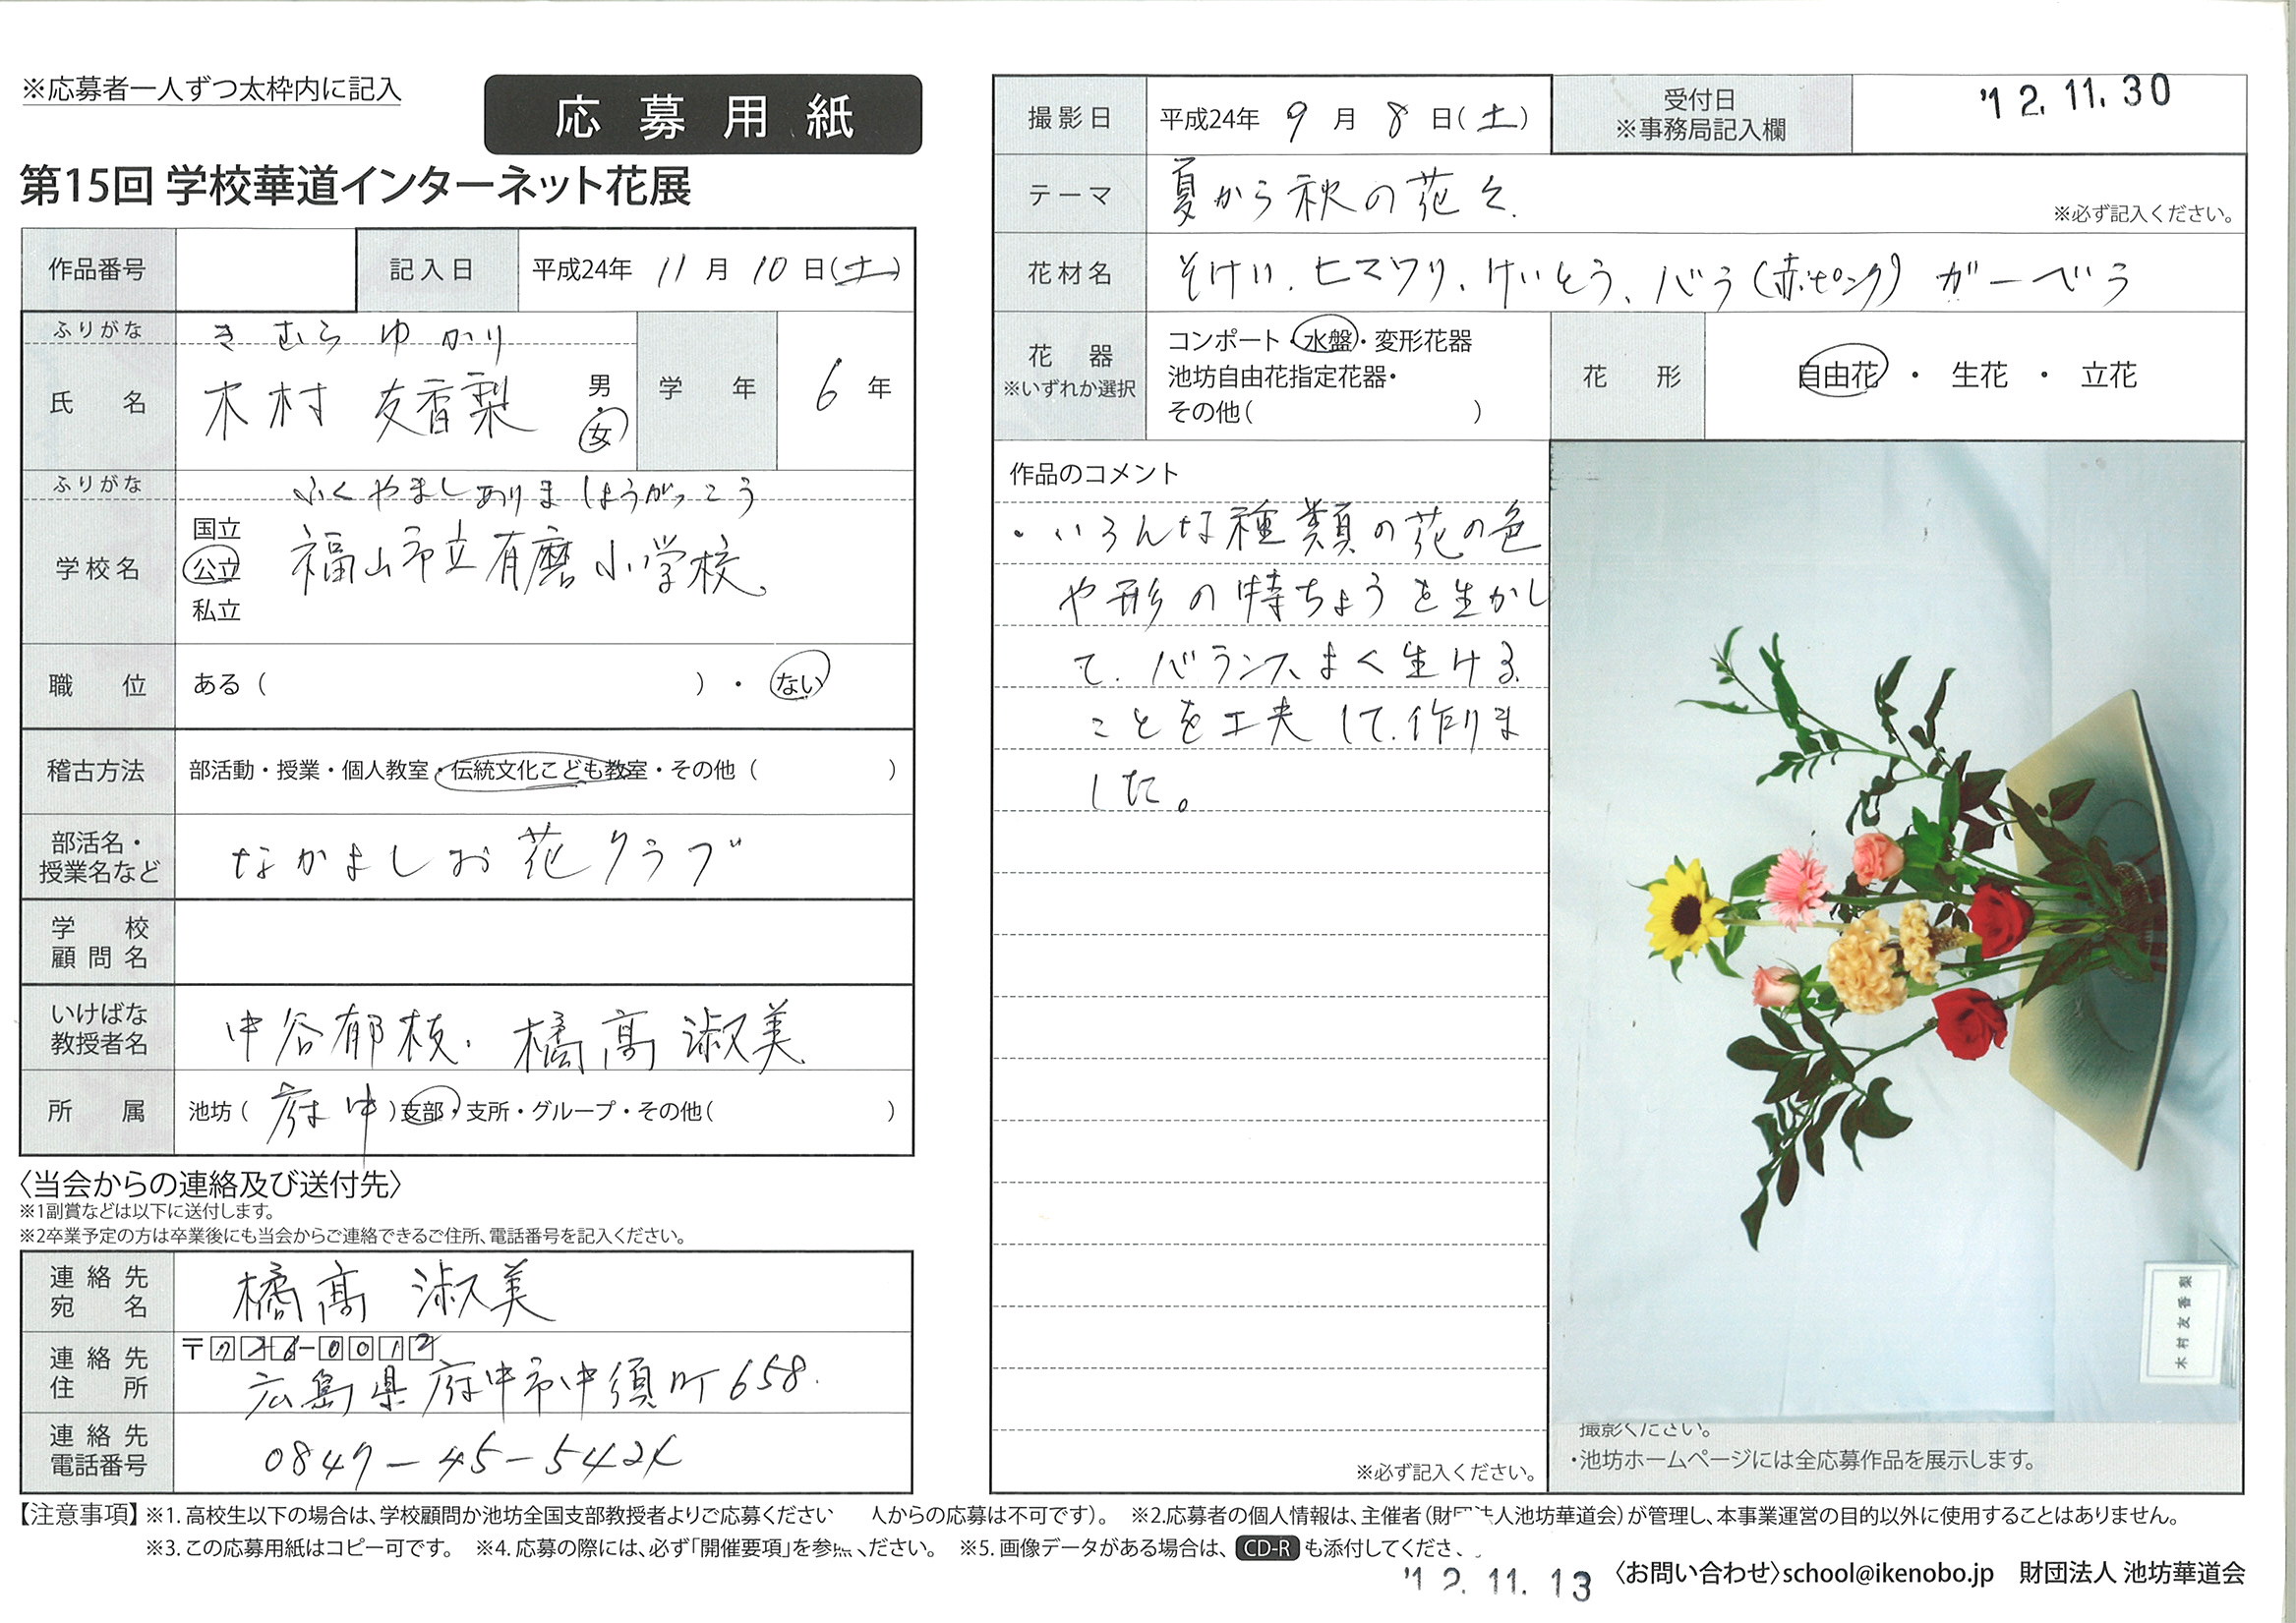 ※応募者一人ずつ太枠内に記入
応募用紙
第15回 学校華道インターネット花展
作品番号
記入日 平成24年 11月 10日(土)
ふりがな きむら ゆかり
氏名 木村 友香梨 男・女
学年 6年
ふりがな ふくやましありましょうがっこう
学校名 国立 公立 私立 福山市立有磨小学校
職位 ある( )・ない
稽古方法 部活動・授業・個人教室・伝統文化こども教室・その他( )
部活名・授業名など なかよしお花クラブ
学校顧問名
いけばな教授者名 中谷郁枝. 橘高 淑美
所属 池坊(府中)支部・支所・グループ・その他( )
〈当会からの連絡及び送付先〉
※1副賞などは以下に送付します。
※2卒業予定の方は卒業後にも当会からご連絡できるご住所、電話番号を記入ください。
連絡先宛名 橘高 淑美
連絡先住所 〒726-0012
広島県府中市中須町658.
連絡先電話番号 0847-45-542
撮影日 平成24年 9月 8日(土)
受付日
※事務局記入欄
'12.11.30
テーマ 夏から秋の花々.
※必ず記入ください。
花材名 そけい.ヒマワリ、けいとう、バラ(赤・ピンク) ガーベラ
花器
※いずれか選択
コンポート・水盤・変形花器
池坊自由花指定花器・
その他( )
花形 自由花・生花・立花
作品のコメント
・いろんな種類の花の色
や形の特ちょうを生かし
て.バランスよく生ける
ことを工夫して.作りま
した。
※必ず記入ください。
木村友香梨
撮影ください。
・池坊ホームページには全応募作品を展示します。
【注意事項】※1.高校生以下の場合は、学校顧問か池坊全国支部教授者よりご応募ください 人からの応募は不可です)。 ※2.応募者の個人情報は、主催者(財団法人池坊華道会)が管理し、本事業運営の目的以外に使用することはありません。
※3.この応募用紙はコピー可です。 ※4.応募の際には、必ず「開催要項」を参照ください。 ※5.画像データがある場合は、CD-Rも添付してくださ
'12.11.13
〈お問い合わせ〉school@ikenobo.jp 財団法人 池坊華道会